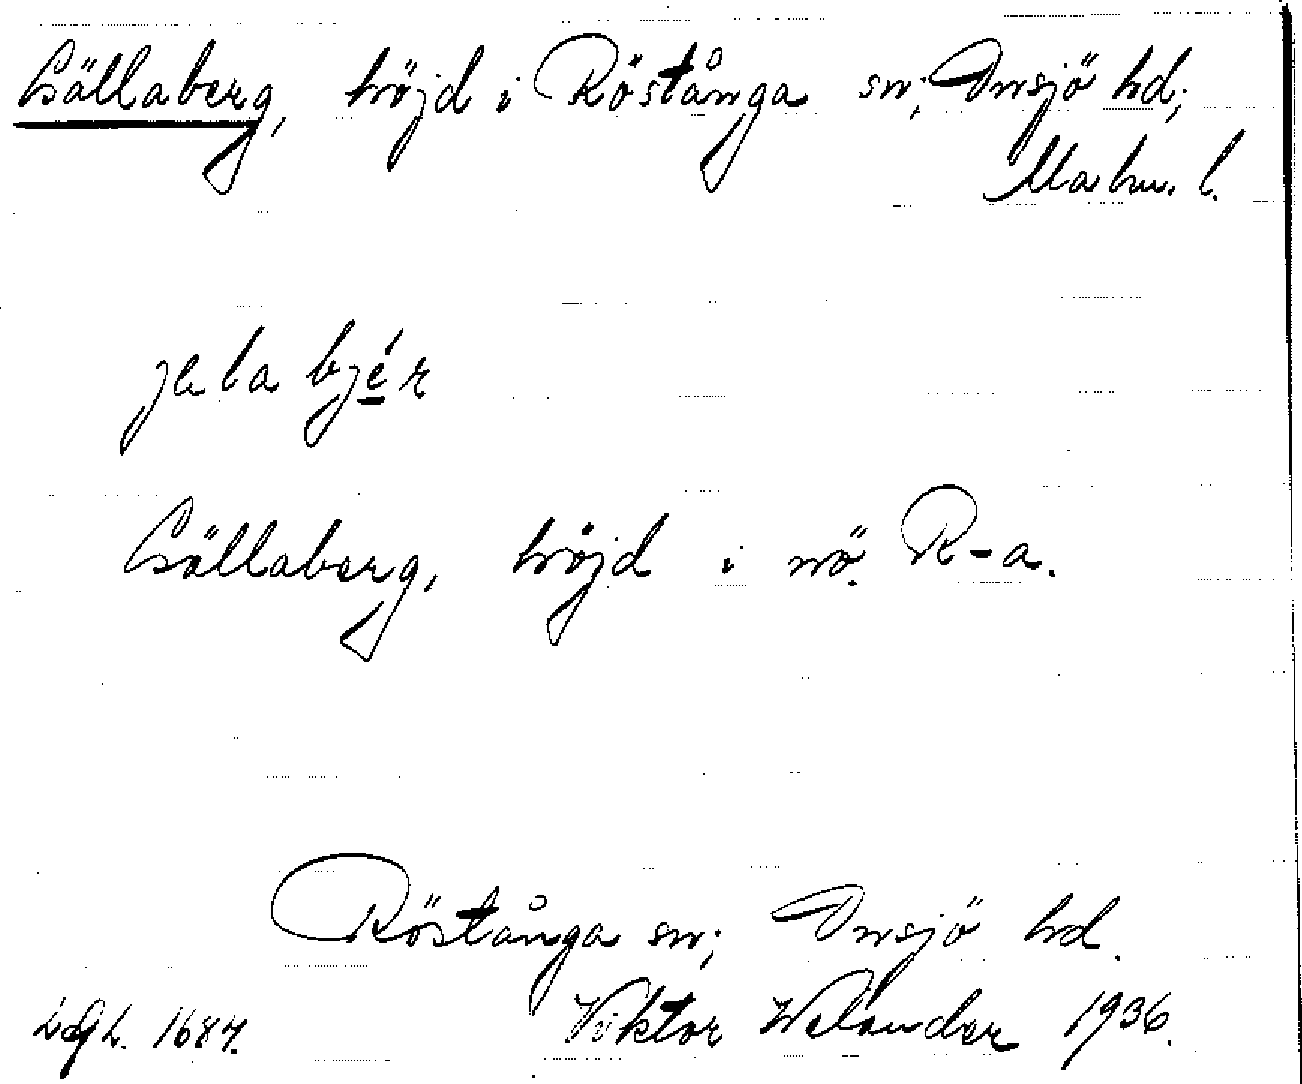 Gällaberg, höjd i Röstånga sn; Onsjö hd;
Malm. l.
jela bjér
Gällaberg, höjd i nö. R-a.
Röstånga sn; Onsjö hd.
Viktor Welander 1936.